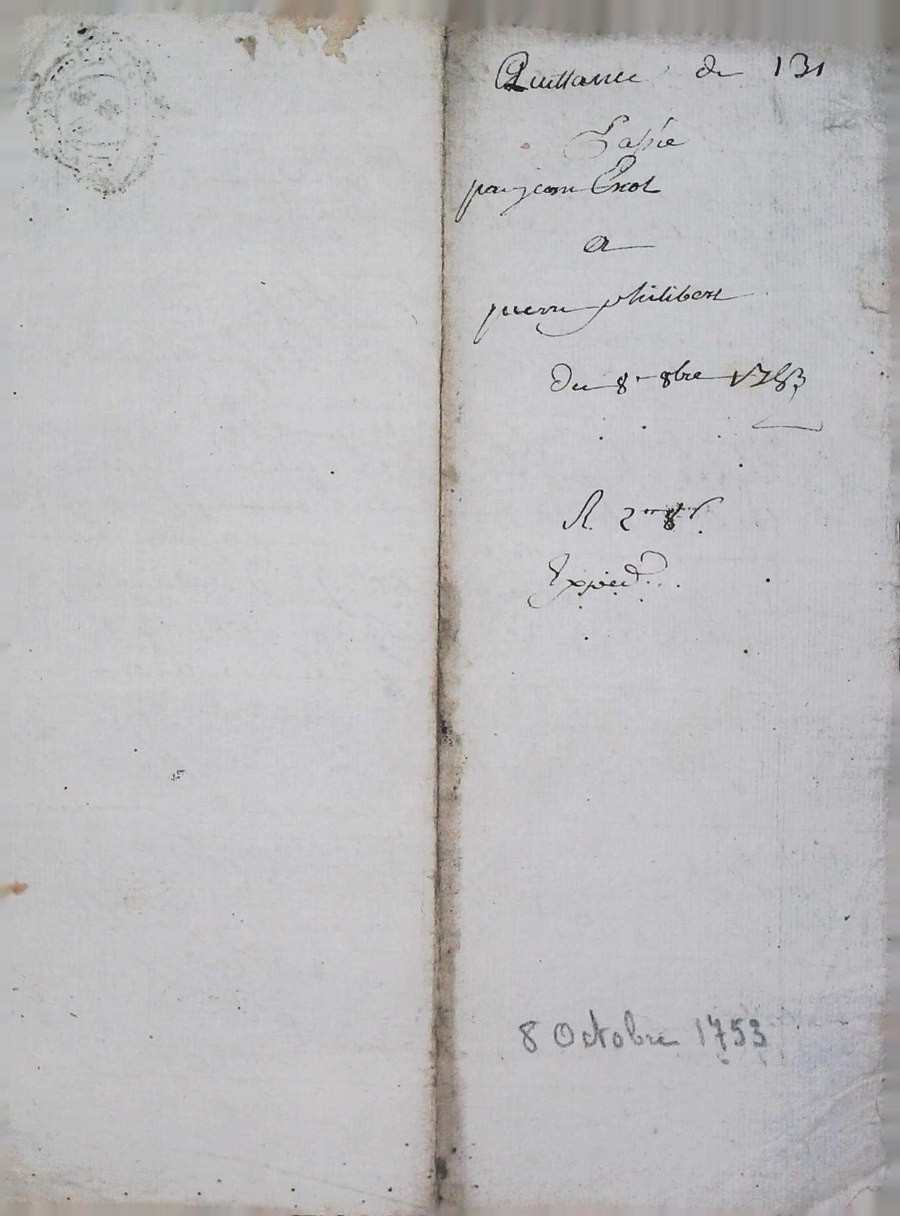 Quittance de 131
Passée
par jean
a
pierre philibert
Du 8e 8bre 1753
R.
Expéd
8 Octobre 1753